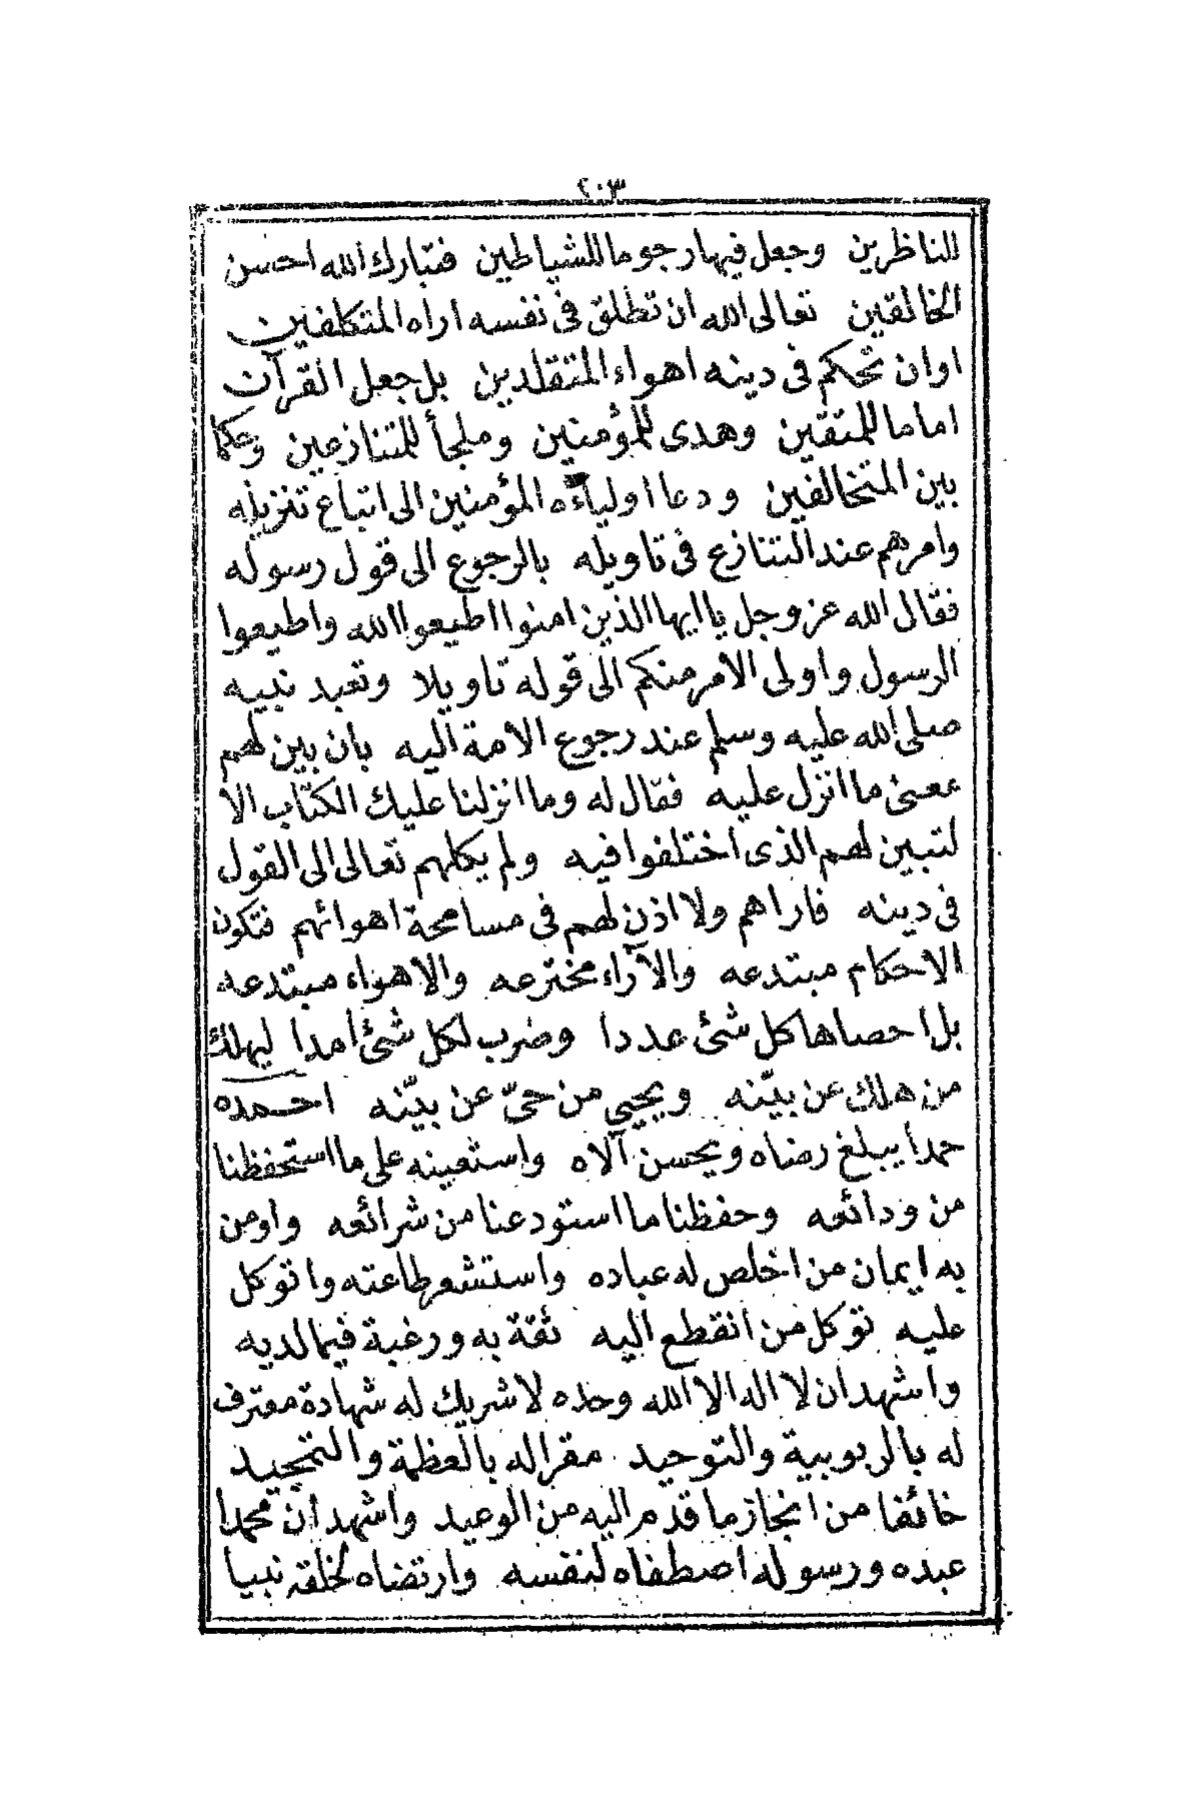 ٢٠٣
للناظرين وجعل فيها رجوما للشياطين فتبارك الله احسن
الخالقين تعالى الله ان تطلق فى نفسه اراه المتكلفين
اوان تحكم فى دينه اهواء المتقلدين بل جعل القرآن
اماما للمتقين وهدى للمؤمنين وملجأ للمتنازعين وحكما
بين المتخالفين ودعا اولياءه المؤمنين الى اتباع تنزيله
وامرهم عند التنازع فى تاويله بالرجوع الى قول رسوله
فقال الله عز وجل يا ايها الذين امنوا اطيعوا الله واطيعوا
الرسول واولى الامر منكم الى قوله تاويلا وتعبد نبيه
صلى الله عليه وسلم عند رجوع الامة اليه بان يبين لهم
معنى ما انزل عليه فقال له وما انزلنا عليك الكتاب الا
لتبين لهم الذى اختلفوا فيه ولم يكلهم تعالى الى القول
فى دينه فاراهم ولا اذن لهم فى مسامحة اهوائهم فتكون
الاحكام مبتدعه والآراء مخترعه والاهواء مبتدعه
بل احصاها كل شئ عددا وضرب لكل شئ امدا ليهلك
من هلك عن بيّنه ويحيي من حىّ عن بيّنه احمده
حمدا يبلغ رضاه ويحسن آلاه واستعينه على ما استحفظنا
من ودائعه وحفظنا ما استودعنا من شرائعه واومن
به ايمان من اخلص له عباده واستشعر طاعته واتوكل
عليه توكل من انقطع اليه ثقة به ورغبة فيما لديه
واشهد ان لا اله الا الله وحده لا شريك له شهادة معترف
له بالربوبية والتوحيد مقرا له بالعظمة والتمجيد
خائفا من انجاز ما قدم اليه من الوعيد واشهد ان محمدا
عبده ورسوله اصطفاه لنفسه وارتضاه لخلقه نبيا